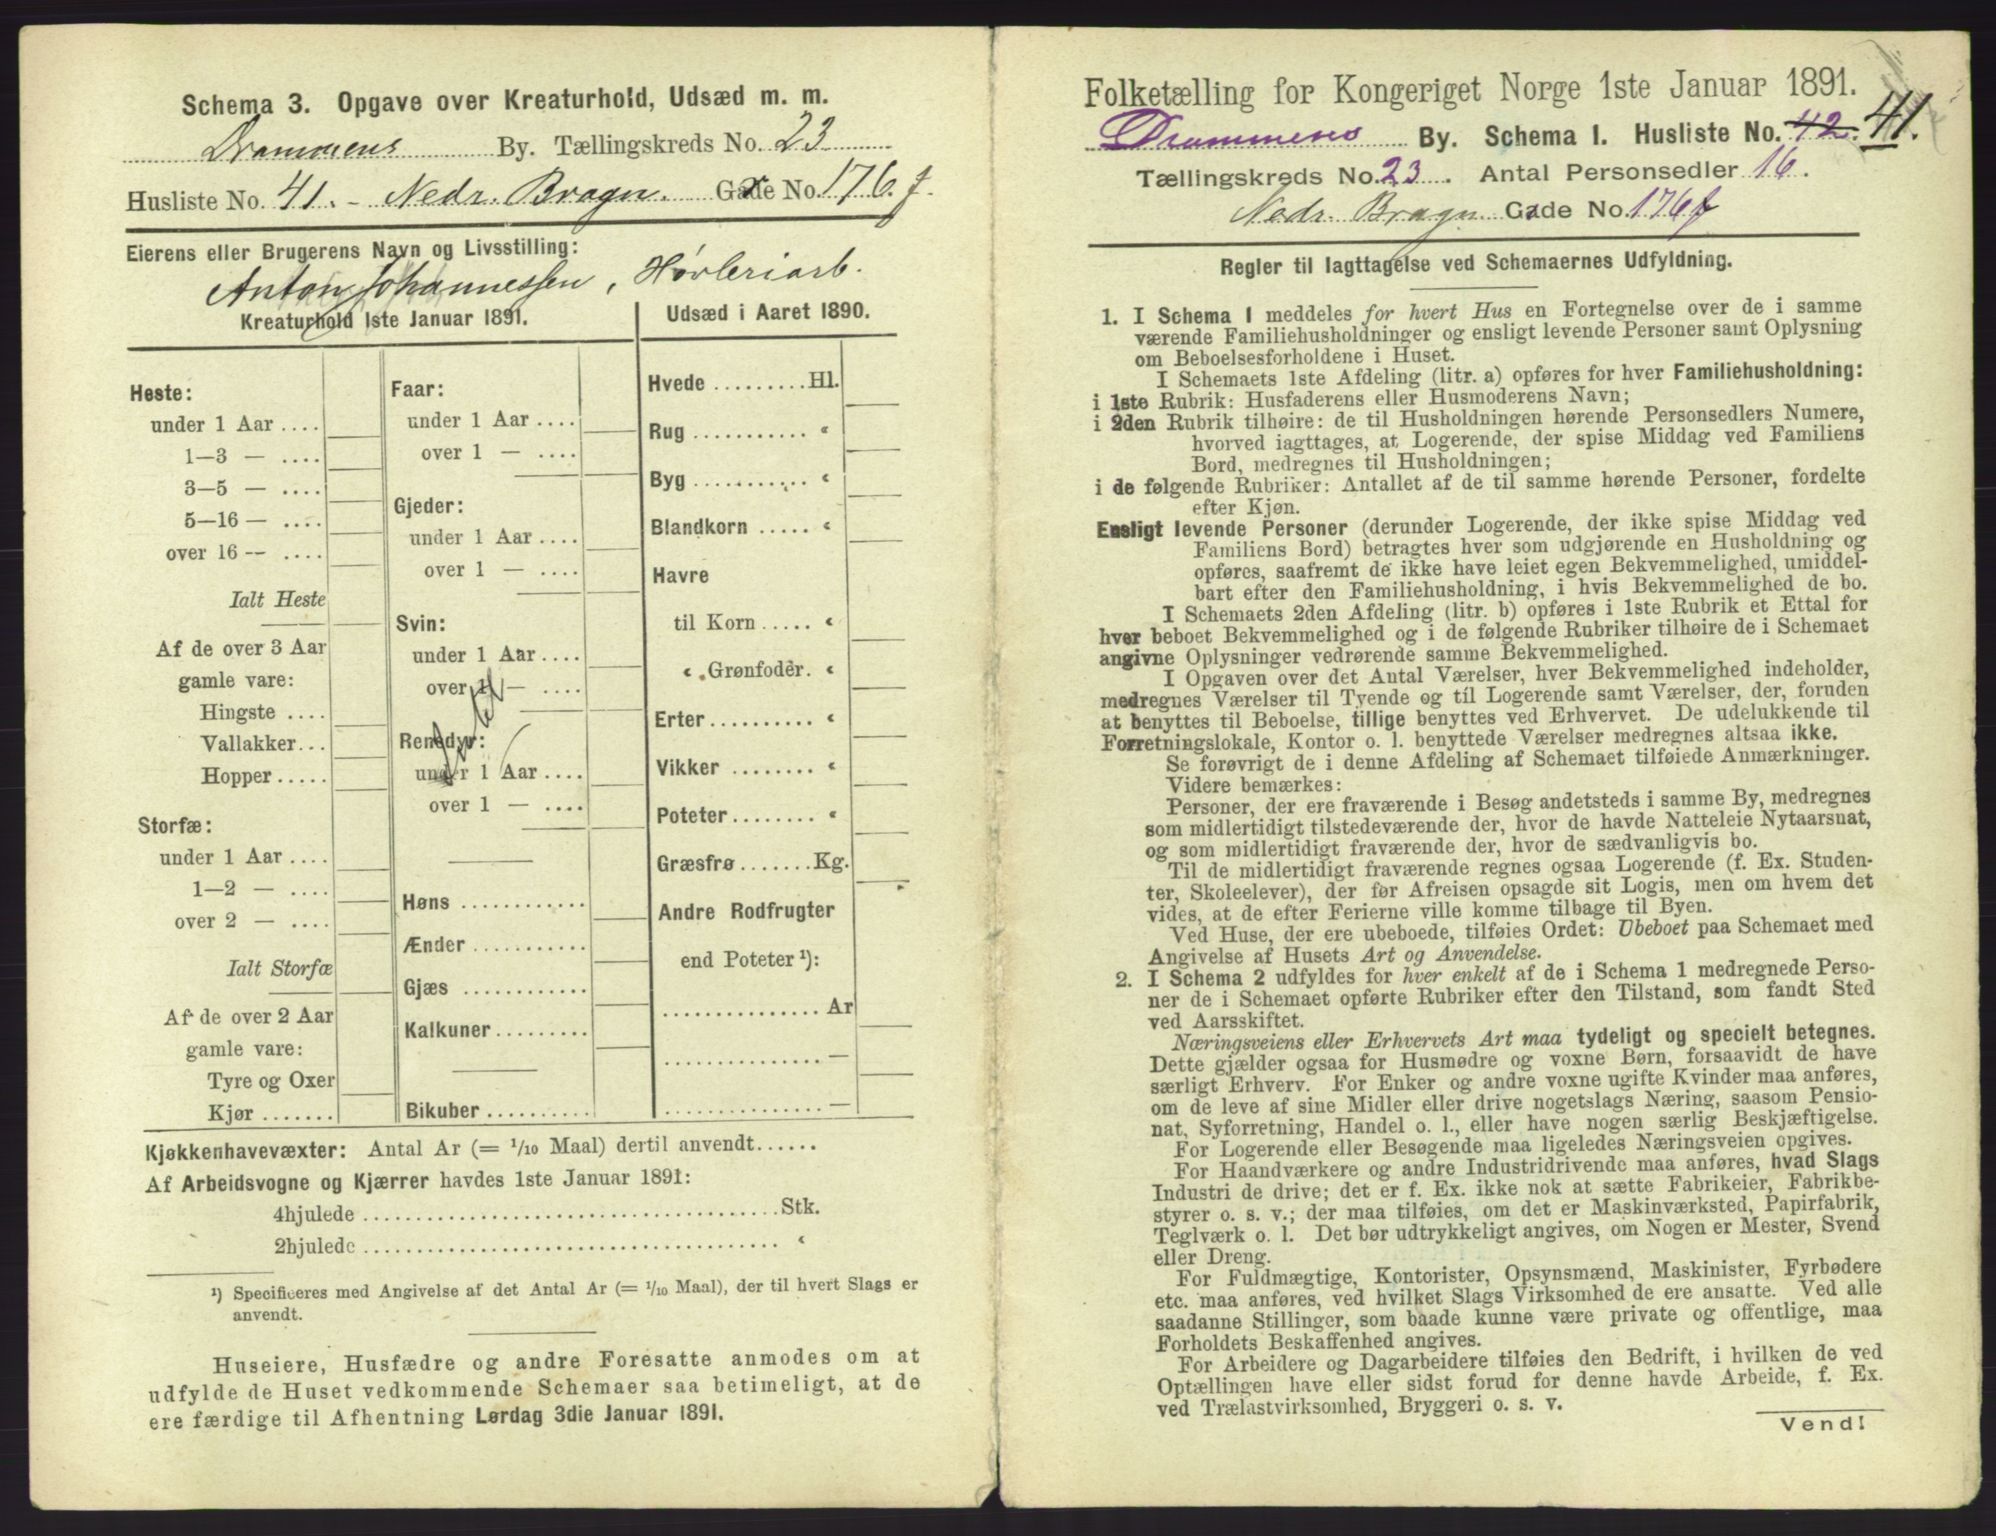 Schema 3. Opgave over Kreaturhold, Udsæd m. m.
Drammens By. Tællingskreds No. 23
Husliste No. 41. - Nedr. Bragn. Gade No. 176. f.
Eierens eller Brugerens Navn og Livsstilling:
Anton Johannessen, Høvleriarb.
Kreaturhold 1ste Januar 1891.
Heste:
under 1 Aar ....
1—3 — ....
3—5 — ....
5—16 — ....
over 16 — ....
Ialt Heste
Af de over 3 Aar
gamle vare:
Hingste ....
Vallakker...
Hopper .....
Storfæ:
under 1 Aar ....
1—2 — ....
over 2 — ....
Ialt Storfæ
Af de over 2 Aar
gamle vare:
Tyre og Oxer
Kjør .......
Faar:
under 1 Aar ....
over 1 — ....
Gjeder:
under 1 Aar ....
over 1 — ....
Svin:
under 1 Aar ....
over 1 — ....
Rensdyr:
under 1 Aar ....
over 1 — ....
Høns ............
Ænder ...........
Gjæs ............
Kalkuner.........
Bikuber ..........
Udsæd i Aaret 1890.
Hvede .........Hl.
Rug ........... «
Byg ........... «
Blandkorn ..... «
Havre
til Korn ..... «
« Grønfoder. «
Erter .......... «
Vikker ........ «
Poteter ........ «
Græsfrø .......Kg.
Andre Rodfrugter
end Poteter ¹):
............... Ar
............... —
............... —
Kjøkkenhavevæxter: Antal Ar (= 1/10 Maal) dertil anvendt......
Af Arbeidsvogne og Kjærrer havdes 1ste Januar 1891:
4hjulede ........................................Stk.
2hjulede ........................................ «
¹) Specificeres med Angivelse af det Antal Ar (= 1/10 Maal), der til hvert Slags er
anvendt.
Huseiere, Husfædre og andre Foresatte anmodes om at
udfylde de Huset vedkommende Schemaer saa betimeligt, at de
ere færdige til Afhentning Lørdag 3die Januar 1891.
Folketælling for Kongeriget Norge 1ste Januar 1891.
Drammens By. Schema 1. Husliste No. 42. 41.
Tællingskreds No. 23. Antal Personsedler 16.
Nedr. Bragn Gade No. 176f
Regler til Iagttagelse ved Schemaernes Udfyldning.
1. I Schema 1 meddeles for hvert Hus en Fortegnelse over de i samme
værende Familiehusholdninger og ensligt levende Personer samt Oplysning
om Beboelsesforholdene i Huset.
I Schemaets 1ste Afdeling (litr. a) opføres for hver Familiehusholdning:
i 1ste Rubrik: Husfaderens eller Husmoderens Navn;
i 2den Rubrik tilhøire: de til Husholdningen hørende Personsedlers Numere,
hvorved iagttages, at Logerende, der spise Middag ved Familiens
Bord, medregnes til Husholdningen;
i de følgende Rubriker: Antallet af de til samme hørende Personer, fordelte
efter Kjøn.
Ensligt levende Personer (derunder Logerende, der ikke spise Middag ved
Familiens Bord) betragtes hver som udgjørende en Husholdning og
opføres, saafremt de ikke have leiet egen Bekvemmelighed, umiddel-
bart efter den Familiehusholdning, i hvis Bekvemmelighed de bo.
I Schemaets 2den Afdeling (litr. b) opføres i 1ste Rubrik et Ettal for
hver beboet Bekvemmelighed og i de følgende Rubriker tilhøire de i Schemaet
angivne Oplysninger vedrørende samme Bekvemmelighed.
I Opgaven over det Antal Værelser, hver Bekvemmelighed indeholder,
medregnes Værelser til Tyende og til Logerende samt Værelser, der, foruden
at benyttes til Beboelse, tillige benyttes ved Erhvervet. De udelukkende til
Forretningslokale, Kontor o. l. benyttede Værelser medregnes altsaa ikke.
Se forøvrigt de i denne Afdeling af Schemaet tilføiede Anmærkninger.
Videre bemærkes:
Personer, der ere fraværende i Besøg andetsteds i samme By, medregnes
som midlertidigt tilstedeværende der, hvor de havde Natteleie Nytaarsnat,
og som midlertidigt fraværende der, hvor de sædvanligvis bo.
Til de midlertidigt fraværende regnes ogsaa Logerende (f. Ex. Studen-
ter, Skoleelever), der før Afreisen opsagde sit Logis, men om hvem det
vides, at de efter Ferierne ville komme tilbage til Byen.
Ved Huse, der ere ubeboede, tilføies Ordet: Ubeboet paa Schemaet med
Angivelse af Husets Art og Anvendelse.
2. I Schema 2 udfyldes for hver enkelt af de i Schema 1 medregnede Perso-
ner de i Schemaet opførte Rubriker efter den Tilstand, som fandt Sted
ved Aarsskiftet.
Næringsveiens eller Erhvervets Art maa tydeligt og specielt betegnes.
Dette gjælder ogsaa for Husmødre og voxne Børn, forsaavidt de have
særligt Erhverv. For Enker og andre voxne ugifte Kvinder maa anføres,
om de leve af sine Midler eller drive nogetslags Næring, saasom Pensio-
nat, Syforretning, Handel o. l., eller have nogen særlig Beskjæftigelse.
For Logerende eller Besøgende maa ligeledes Næringsveien opgives.
For Haandværkere og andre Industridrivende maa anføres, hvad Slags
Industri de drive; det er f. Ex. ikke nok at sætte Fabrikeier, Fabrikbe-
styrer o. s. v.; der maa tilføies, om det er Maskinværksted, Papirfabrik,
Teglværk o. l. Det bør udtrykkeligt angives, om Nogen er Mester, Svend
eller Dreng.
For Fuldmægtige, Kontorister, Opsynsmænd, Maskinister, Fyrbødere
etc. maa anføres, ved hvilket Slags Virksomhed de ere ansatte. Ved alle
saadanne Stillinger, som baade kunne være private og offentlige, maa
Forholdets Beskaffenhed angives.
For Arbeidere og Dagarbeidere tilføies den Bedrift, i hvilken de ved
Optællingen have eller sidst forud for denne havde Arbeide, f. Ex.
ved Trælastvirksomhed, Bryggeri o. s. v.
Vend!